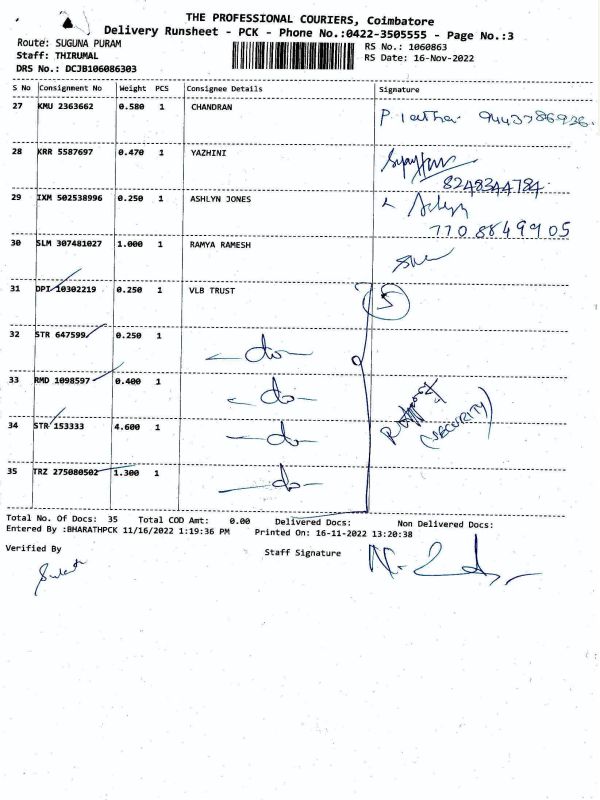 THE PROFESSIONAL COURIERS, Coimbatore
Delivery Runsheet - PCK - Phone No.:0422-3505555 - Page No.:3
Route: SUGUNA PURAM
RS No.: 1060863
Staff: THIRUMAL
RS Date: 16-Nov-2022
DRS No.: DCJB106086303
S No Consignment No Weight PCS Consignee Details Signature
27 KMU 2363662 0.580 1 CHANDRAN
28 KRR 5587697 0.470 1 YAZHINI
8248344784
29 IXM 502538996 0.250 1 ASHLYN JONES
7708849905
30 SLM 307481027 1.000 1 RAMYA RAMESH
31 DPI 10302219 0.250 1 VLB TRUST 5
32 STR 647599 0.250 1 do
33 RMD 1098597 0.400 1 do
34 STR 153333 4.600 1 do (SECURITY)
35 TRZ 275080502 1.300 1 do
Total No. Of Docs: 35 Total COD Amt: 0.00 Delivered Docs: Non Delivered Docs:
Entered By :BHARATHPCK 11/16/2022 1:19:36 PM Printed On: 16-11-2022 13:20:38
Verified By Staff Signature